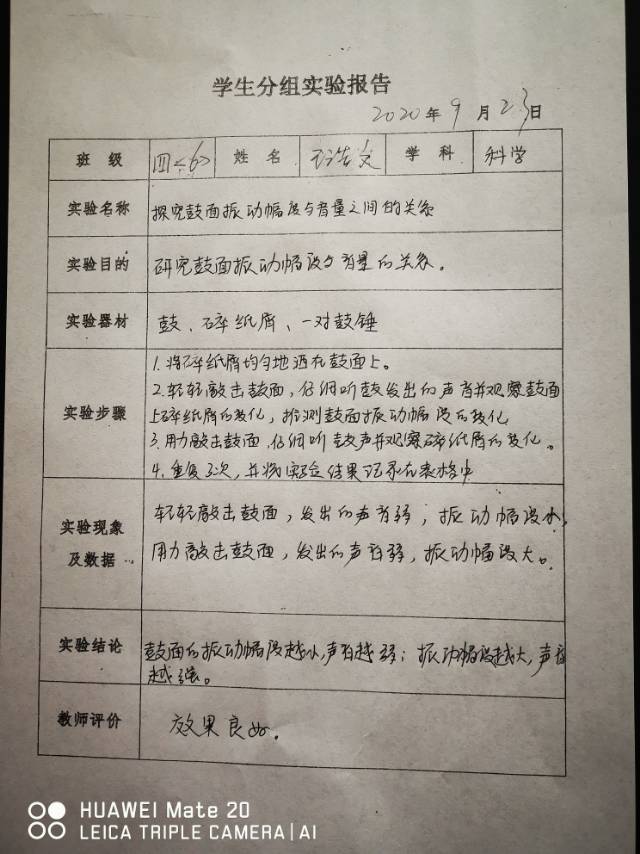 学生分组实验报告
2020年9月23日
班 级 四<6> 姓 名 学 科 科学
实验名称 探究鼓面振动幅度与音量之间的关系
实验目的 研究鼓面振动幅度与音量的关系。
实验器材 鼓、碎纸屑、一对鼓锤
实验步骤
1.将碎纸屑均匀地洒在鼓面上。
2.轻轻敲击鼓面,仔细听鼓发出的声音并观察鼓面
上碎纸屑的变化,推测鼓面振动幅度的变化
3.用力敲击鼓面,仔细听鼓声并观察碎纸屑的变化。
4.重复3次,并将实验结果记录在表格中
实验现象
及数据
轻轻敲击鼓面,发出的声音弱,振动幅度小,
用力敲击鼓面,发出的声音弱,振动幅度大。
实验结论 鼓面的振动幅度越小,声音越弱;振动幅度越大,声音
越强。
教师评价 效果良好。
HUAWEI Mate 20
LEICA TRIPLE CAMERA | AI